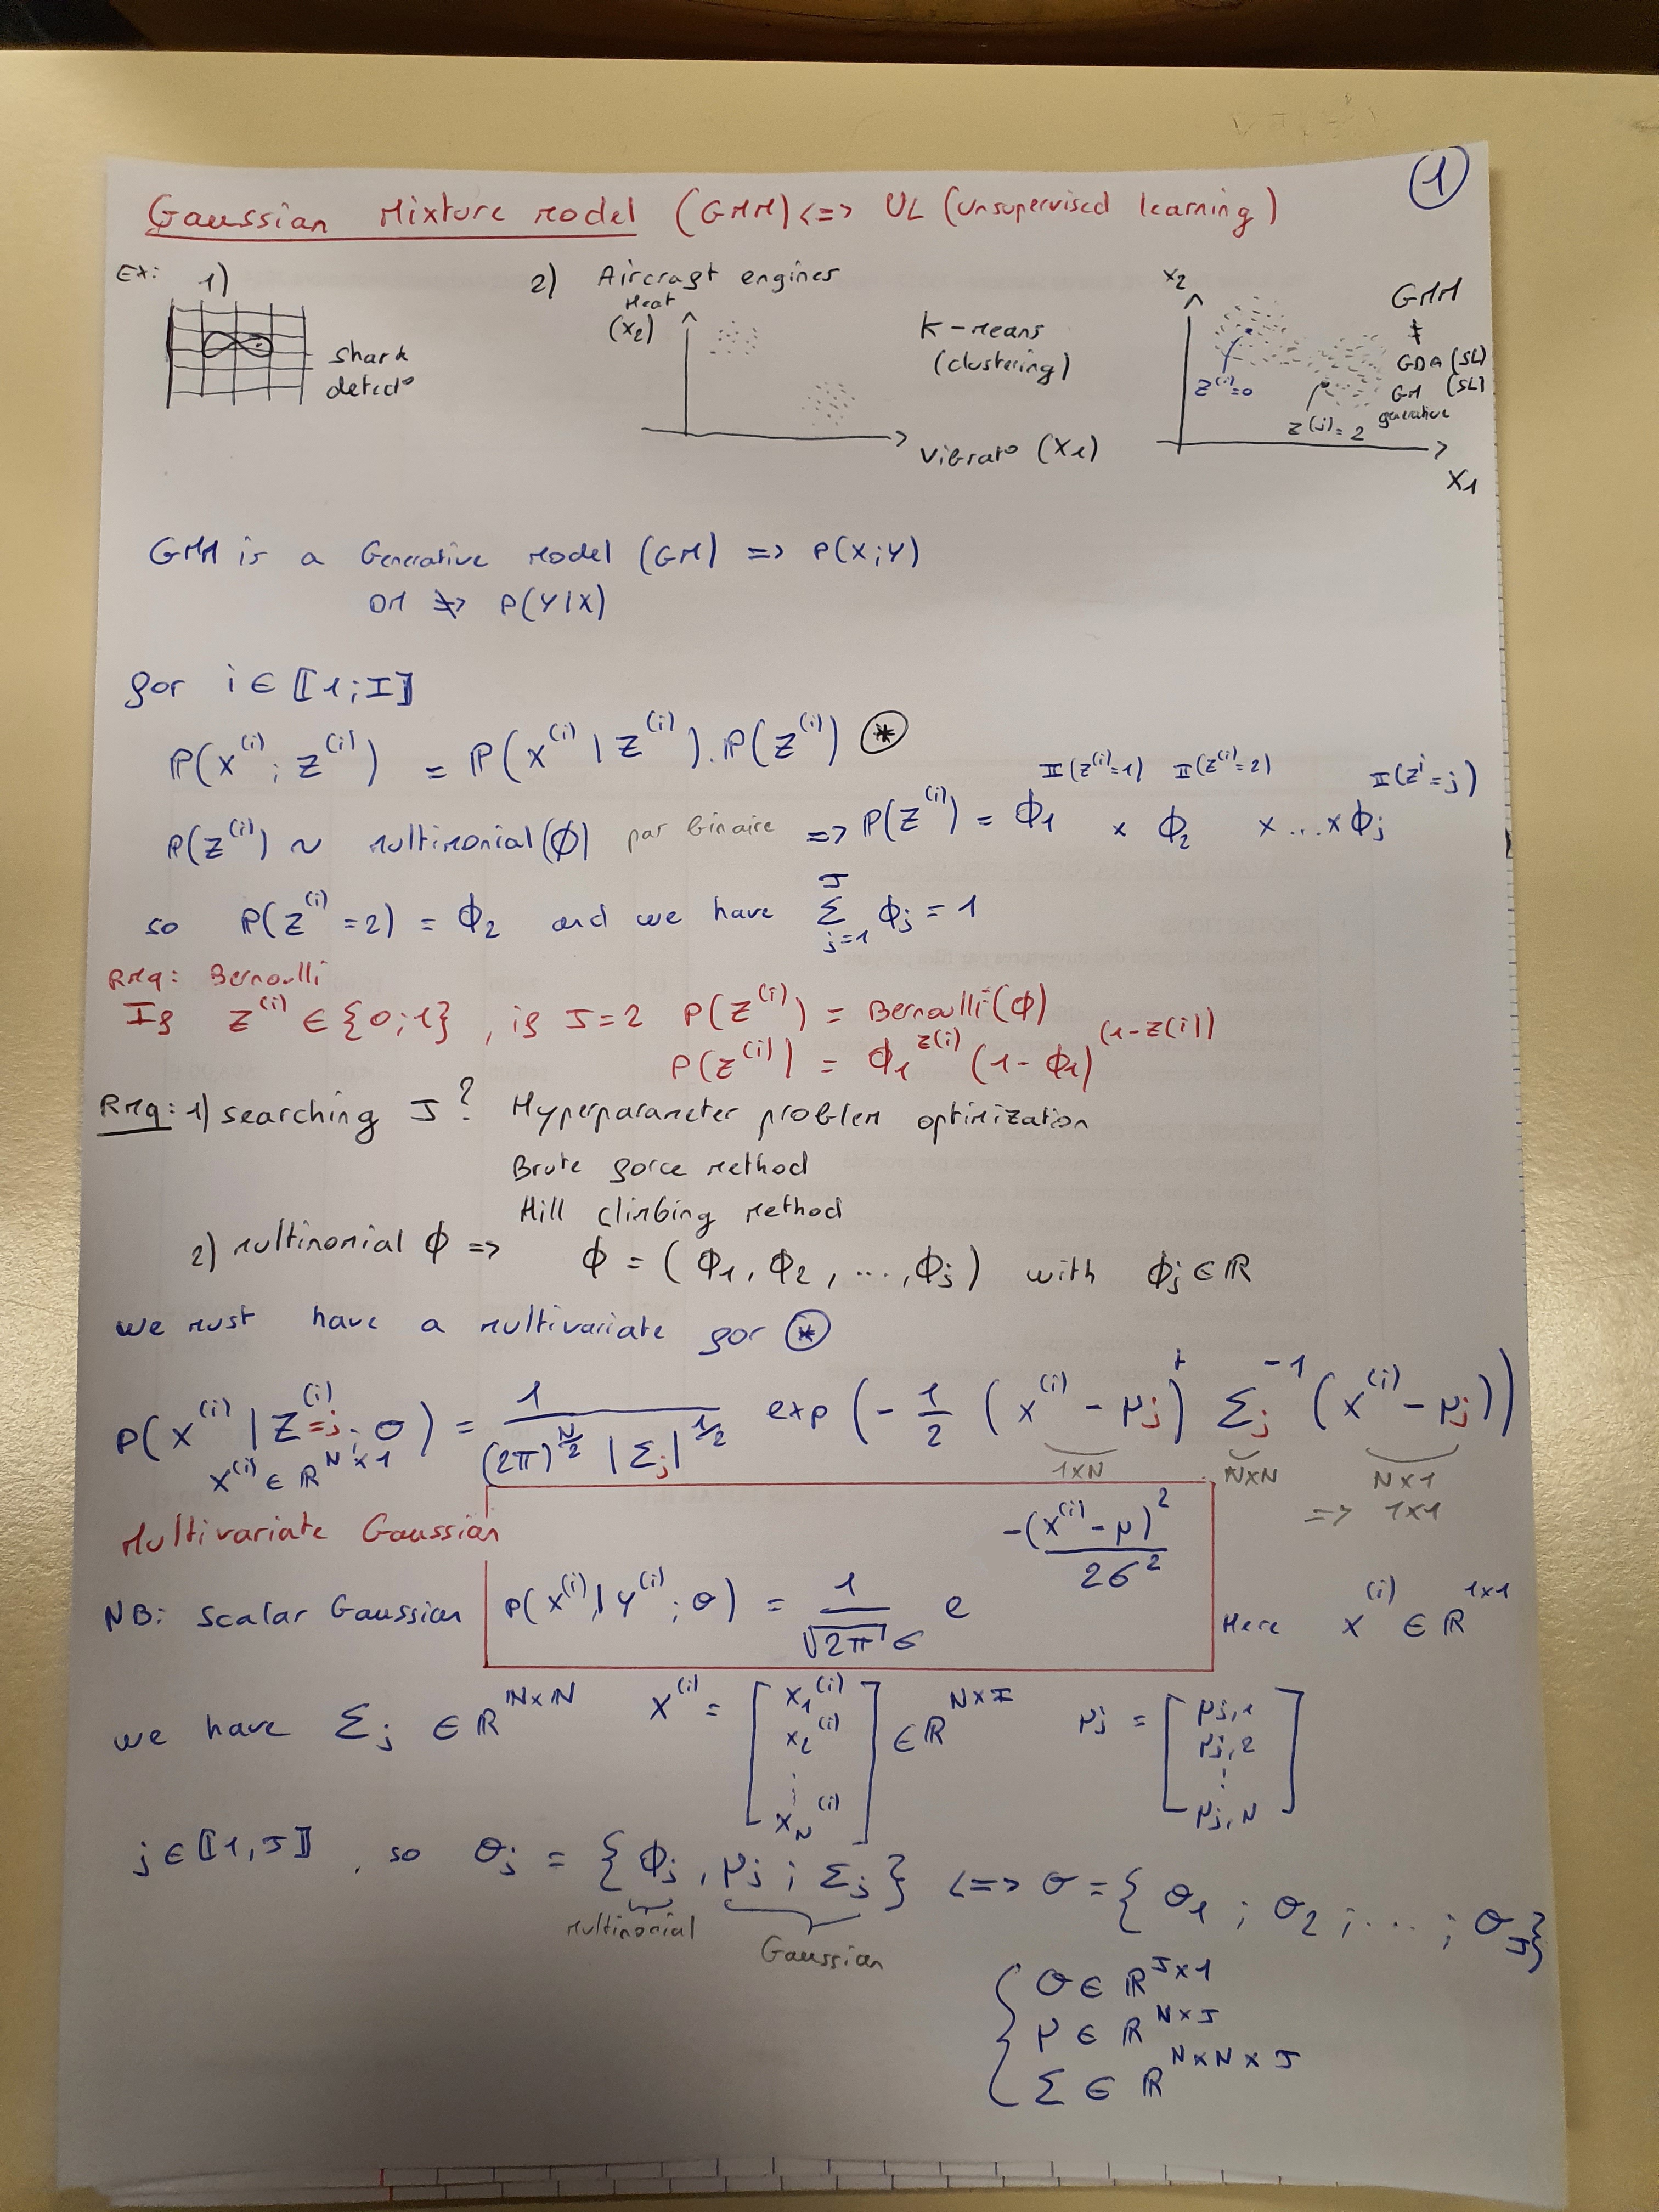 1
Gaussian Mixture Model (GMM) <=> UL (Unsupervised learning)
Ex: 1)
shark
detect°
2) Aircraft engines
Heat
(x2)
Vibrat° (x1)
K-Means
(clustering)
x2
GMM
≠
GDA (SL)
GM (SL)
generative
z^(i)=0
z^(j)=2
x1
GMM is a Generative Model (GM) => P(X;Y)
DM ≠> P(Y|X)
for i ∈ ⟦1;I⟧
P(x^(i); z^(i)) = P(x^(i) | z^(i)).P(z^(i)) (*)
P(z^(i)) ~ Multinomial(ϕ) par binaire => P(z^(i)) = ϕ1^𝕀(z^(i)=1) × ϕ2^𝕀(z^(i)=2) × ... × ϕj^𝕀(z^i=j)
so P(z^(i)=2) = ϕ2 and we have Σ_{j=1}^{J} ϕj = 1
RMq: Bernoulli
If z^(i) ∈ {0;1}, if J=2 P(z^(i)) = Bernoulli(ϕ)
P(z^(i)) = ϕ1^z(i) (1-ϕ1)^(1-z(i))
RMq: 1) searching J? Hyperparameter problem optimization
Brute force method
Hill climbing method
2) Multinomial ϕ => ϕ = (ϕ1, ϕ2, ..., ϕj) with ϕj ∈ ℝ
we must have a multivariate for (*)
P(x^(i) | z^(i)=j; θ) = 1/((2π)^(N/2) |Σj|^(1/2)) exp(-1/2 (x^(i) - μj)^t Σj^-1 (x^(i) - μj))
x^(i) ∈ ℝ^N×1
1×N N×N N×1
=> 1×1
Multivariate Gaussian
NB: Scalar Gaussian P(x^(i) | y^(i); θ) = 1/(√2π σ) e^(-(x^(i)-μ)^2/2σ^2) Here x^(i) ∈ ℝ^1×1
we have Σj ∈ ℝ^N×N x^(i) = [x1^(i) x2^(i) ⋮ xN^(i)] ∈ ℝ^N×I μj = [μj,1 μj,2 ⋮ μj,N]
j ∈ ⟦1,J⟧, so θj = {ϕj, μj; Σj} <=> θ = {θ1; θ2; ...; θJ}
Multinomial
Gaussian
θ ∈ ℝ^J×1
μ ∈ ℝ^N×J
Σ ∈ ℝ^N×N×J